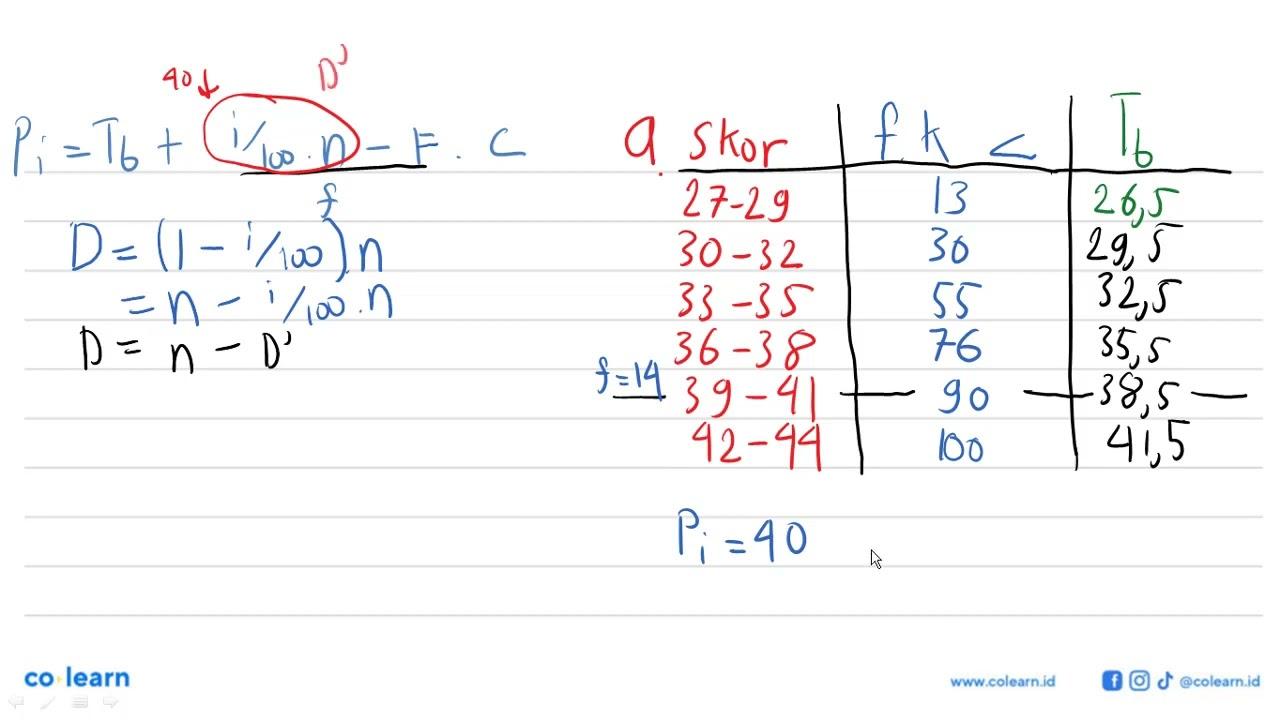 40↓ D'
Pi = Tb + i/100 . n - F . C
f
D = (1 - i/100).n
= n - i/100 . n
D = n - D'
a. Skor f k < Tb
27-29 13 26,5
30-32 30 29,5
33-35 55 32,5
36-38 76 35,5
f=14 39-41 90 38,5
42-44 100 41,5
Pi = 40
co learn
www.colearn.id @colearn.id